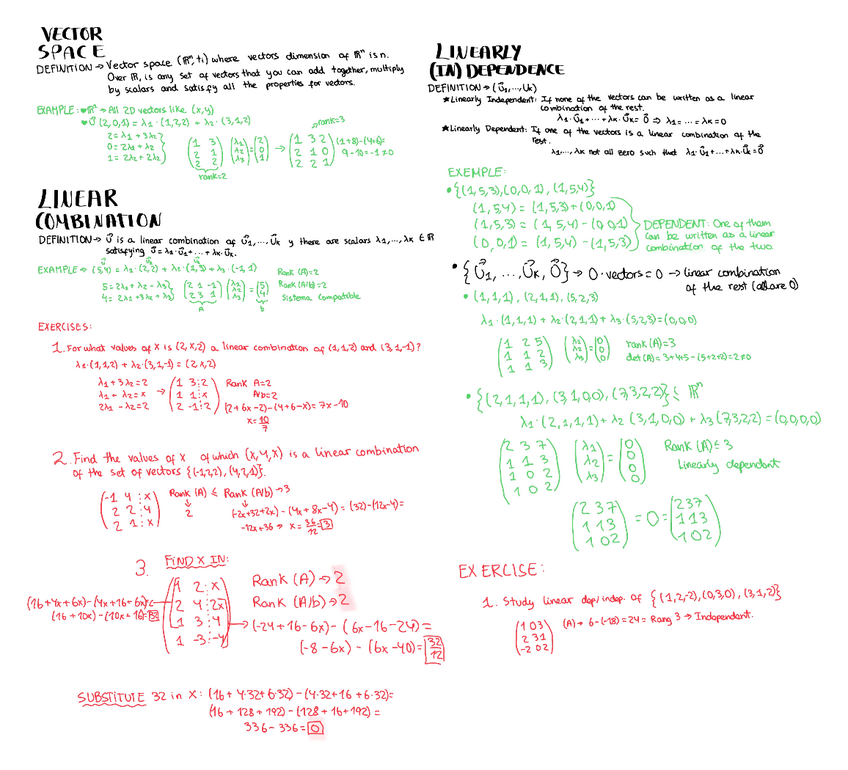 VECTOR
SPACE
DEFINITION → Vector space (ℝⁿ, +,·) where vectors dimension of ℝⁿ is n.
Over ℝ, is any set of vectors that you can add together, multiply
by scalars and satisfy all the properties for vectors.
EXAMPLE: ♥ℝ² → All 2D vectors like (x,y)
♥ū (2,0,1) = λ1 · (1,2,2) + λ2 · (3,1,2)
2 = λ1 + 3λ2
0 = 2λ1 + λ2
1 = 2λ1 + 2λ2
(1 3; 2 1; 2 2) (λ1; λ2; λ3) = (2; 0; 1) → (1 3 2; 2 1 0; 2 2 1) (1+8)-(4+6)=
9-10=-1≠0
rank=2
rank=3
LINEAR
COMBINATION
DEFINITION → ū is a linear combination of ū1,..., ūk y there are scalars λ1,...,λk ∈ ℝ
satisfying ū = λ1·ū1 + ... + λk·ūk.
EXAMPLE → (5,4) = λ1 · (2,2) + λ2 · (1,3) + λ3 · (-1,1)
5 = 2λ1 + λ2 - λ3
4 = 2λ1 + 3λ2 + λ3
(2 1 -1; 2 3 1) (λ1; λ2; λ3) = (5; 4)
A b
Rank (A) = 2
Rank (A/b) = 2
Sistema compatible
EXERCISES:
1. For what values of x is (2,x,2) a linear combination of (1,1,2) and (3,1,-1)?
λ1·(1,1,2) + λ2·(3,1,-1) = (2,x,2)
λ1 + 3λ2 = 2
λ1 + λ2 = x
2λ1 - λ2 = 2
→ (1 3 2; 1 1 x; 2 -1 2) Rank A=2
A/b=2
(2+6x-2)-(4+6-x)= 7x-10
x = 10/7
2. Find the values of x of which (x,4,x) is a linear combination
of the set of vectors {(-1,2,2), (4,2,1)}.
(-1 4 x; 2 2 4; 2 1 x) Rank (A) ≤ Rank (A/b) → 3
2
(-2x+32+2x) - (4x+8x-4) = (32)-(12x-4)=
-12x+36 → x = 36/12 = 3
3. FIND X IN:
(1 2 x; 2 4 2x; 1 3 4; 1 -3 -4)
Rank (A) → 2
Rank (A/b) → 2
(16+4x+6x)-(4x+16+6x)=
(16+10x)-(10x+16)=
→ (-24+16-6x) - (6x-16-24) =
(-8-6x) - (6x-40) = 32/12
SUBSTITUTE 32 in X: (16+4·32+6·32)-(4·32+16+6·32)=
(16+128+192)-(128+16+192)=
336-336=0
LINEARLY
(IN) DEPENDENCE
DEFINITION → (ū1,...,ūk)
★Linearly Independent: If none of the vectors can be written as a linear
combination of the rest.
λ1·ū1+...+λk·ūk=0 ⇒ λ1=...=λk=0
★Linearly Dependent: If one of the vectors is a linear combination of the
rest.
λ1,...,λk not all zero such that λ1·ū1+...+λk·ūk=0
EXEMPLE:
• {(1,5,3),(0,0,1),(1,5,4)}
(1,5,4) = (1,5,3)+(0,0,1)
(1,5,3) = (1,5,4)-(0,0,1)
(0,0,1) = (1,5,4)-(1,5,3)
DEPENDENT: One of them
can be written as a linear
combination of the two
• {ū1, ..., ūk, 0} → 0·vectors=0 → linear combination
of the rest (all are 0)
• (1,1,1), (2,1,1), (5,2,3)
λ1·(1,1,1)+λ2·(2,1,1)+λ3·(5,2,3)=(0,0,0)
(1 2 5; 1 1 2; 1 1 3) (λ1; λ2; λ3) = (0; 0; 0) rank(A)=3
det(A)= 3+4+5-(5+2+2)=2≠0
• {(2,1,1,1),(3,1,0,0),(7,3,2,2)} ≤ ℝⁿ
λ1·(2,1,1,1)+λ2(3,1,0,0)+λ3(7,3,2,2)=(0,0,0,0)
(2 3 7; 1 1 3; 1 0 2; 1 0 2) (λ1; λ2; λ3) = (0; 0; 0; 0) Rank(A)≤3
Linearly dependent
(2 3 7; 1 1 3; 1 0 2) = 0 = (2 3 7; 1 1 3; 1 0 2)
EXERCISE:
1. Study linear dep/indep. of {(1,2,-2),(0,3,0),(3,1,2)}
(1 0 3; 2 3 1; -2 0 2) (A)→ 6-(-18)=24= Rang 3 → Independent.